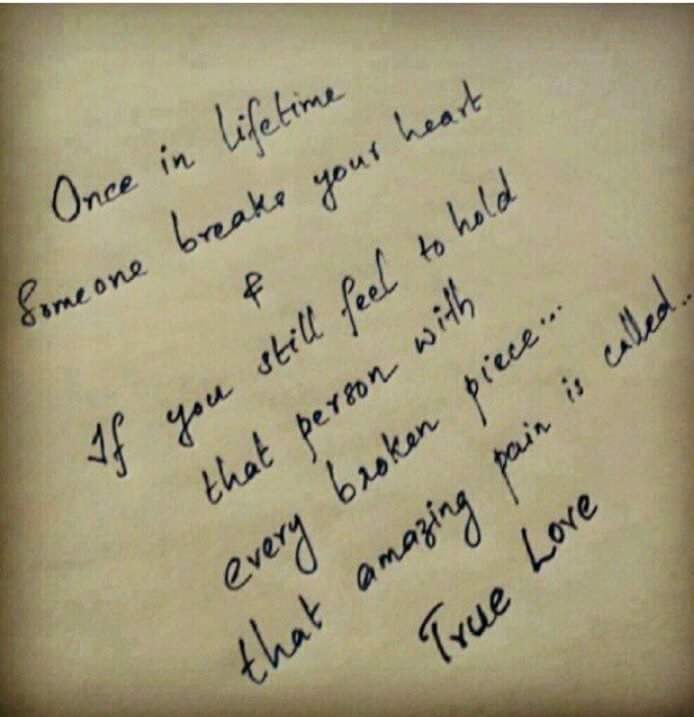 Once in lifetime
Someone breaks your heart
&
If you still feel to hold
that person with
every broken piece...
that amazing pain is called..
True Love